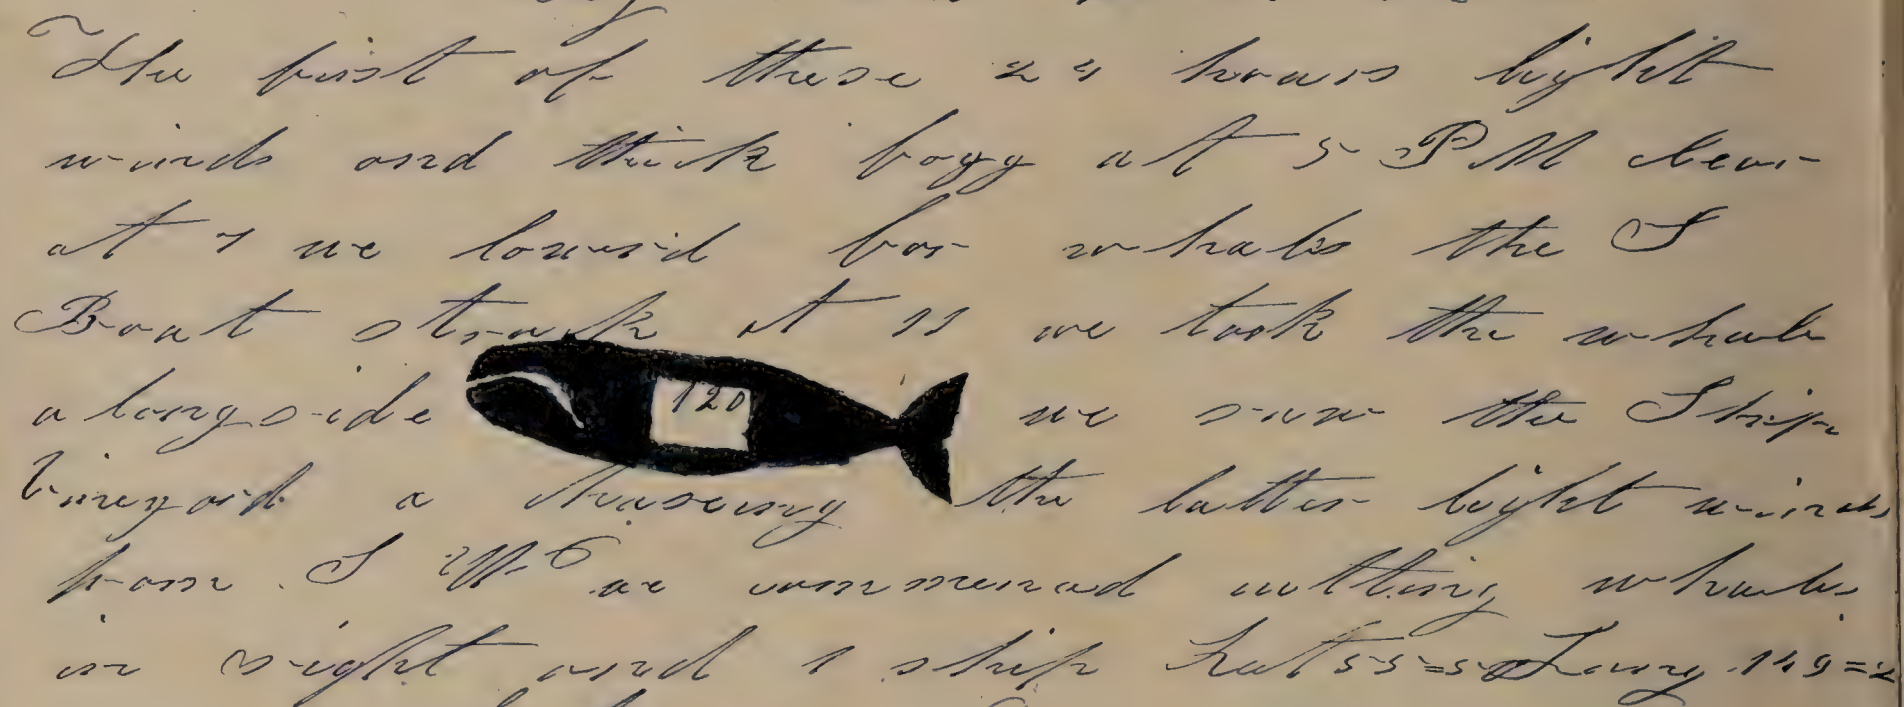 The first of these 24 hours light
winds and thick fogg at 5 PM clear
at 7 we lowerd for whales the S
Boat struck at 11 we took the whale
alongside 120 we saw the Ship
Vineyard a chaseing the latter light winds
from S W we commencd cutting whales
in sight and 1 ship Lat 55=50 Long 149=2